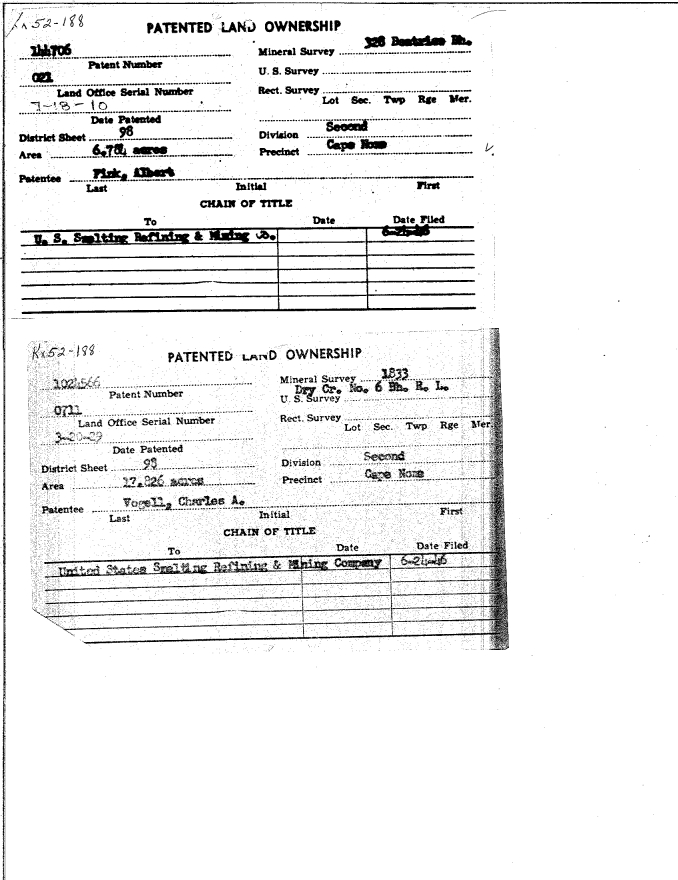 Kx 52-188
PATENTED LAND OWNERSHIP
144706
Patent Number
021
Land Office Serial Number
7-18-10
Date Patented
District Sheet 98
Area 6.784 acres
Mineral Survey 328 Beatrice Bh.
U. S. Survey
Rect. Survey
Lot Sec. Twp Rge Mer.
Division Second
Precinct Cape Nome
Patentee Fink, Albert
Last Initial First
CHAIN OF TITLE
To Date Date Filed
U. S. Smelting Refining & Mining Co. 6-24-46
Kx 52-188
PATENTED LAND OWNERSHIP
1024566
Patent Number
0711
Land Office Serial Number
3-20-29
Date Patented
District Sheet 98
Area 17.826 acres
Mineral Survey 1833
Dry Cr. No. 6 Bh. R. L.
U. S. Survey
Rect. Survey
Lot Sec. Twp Rge Mer.
Division Second
Precinct Cape Nome
Patentee Vogell, Charles A.
Last Initial First
CHAIN OF TITLE
To Date Date Filed
United States Smelting Refining & Mining Company 6-24-46